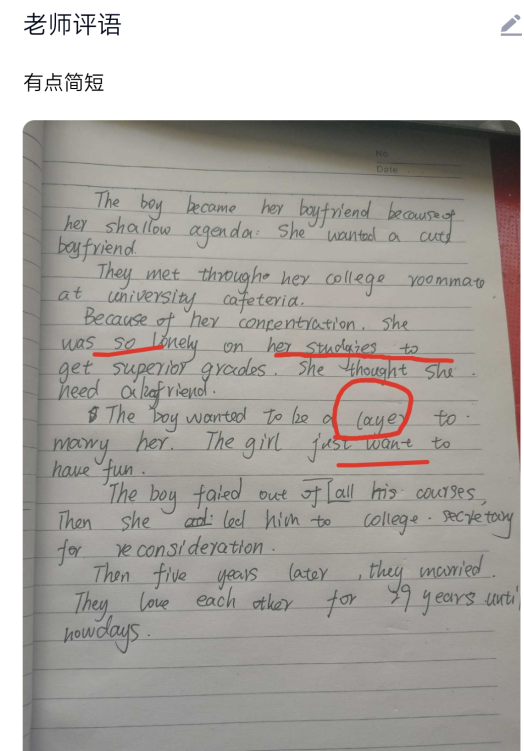 老师评语
有点简短
No
Date
The boy became her boyfriend because of
her shallow agenda: She wanted a cute
boyfriend.
They met throughe her college roommate
at university cafeteria.
Because of her concentration. She
was so lonely on her studaies to
get superior grades. She thought she
need a boyfriend.
The boy wanted to be a layer to
marry her. The girl just want to
have fun.
The boy faled out of all his courses,
Then she led him to college. secretary
for reconsideration.
Then five years later, they married.
They love each other for 39 years until
nowdays.